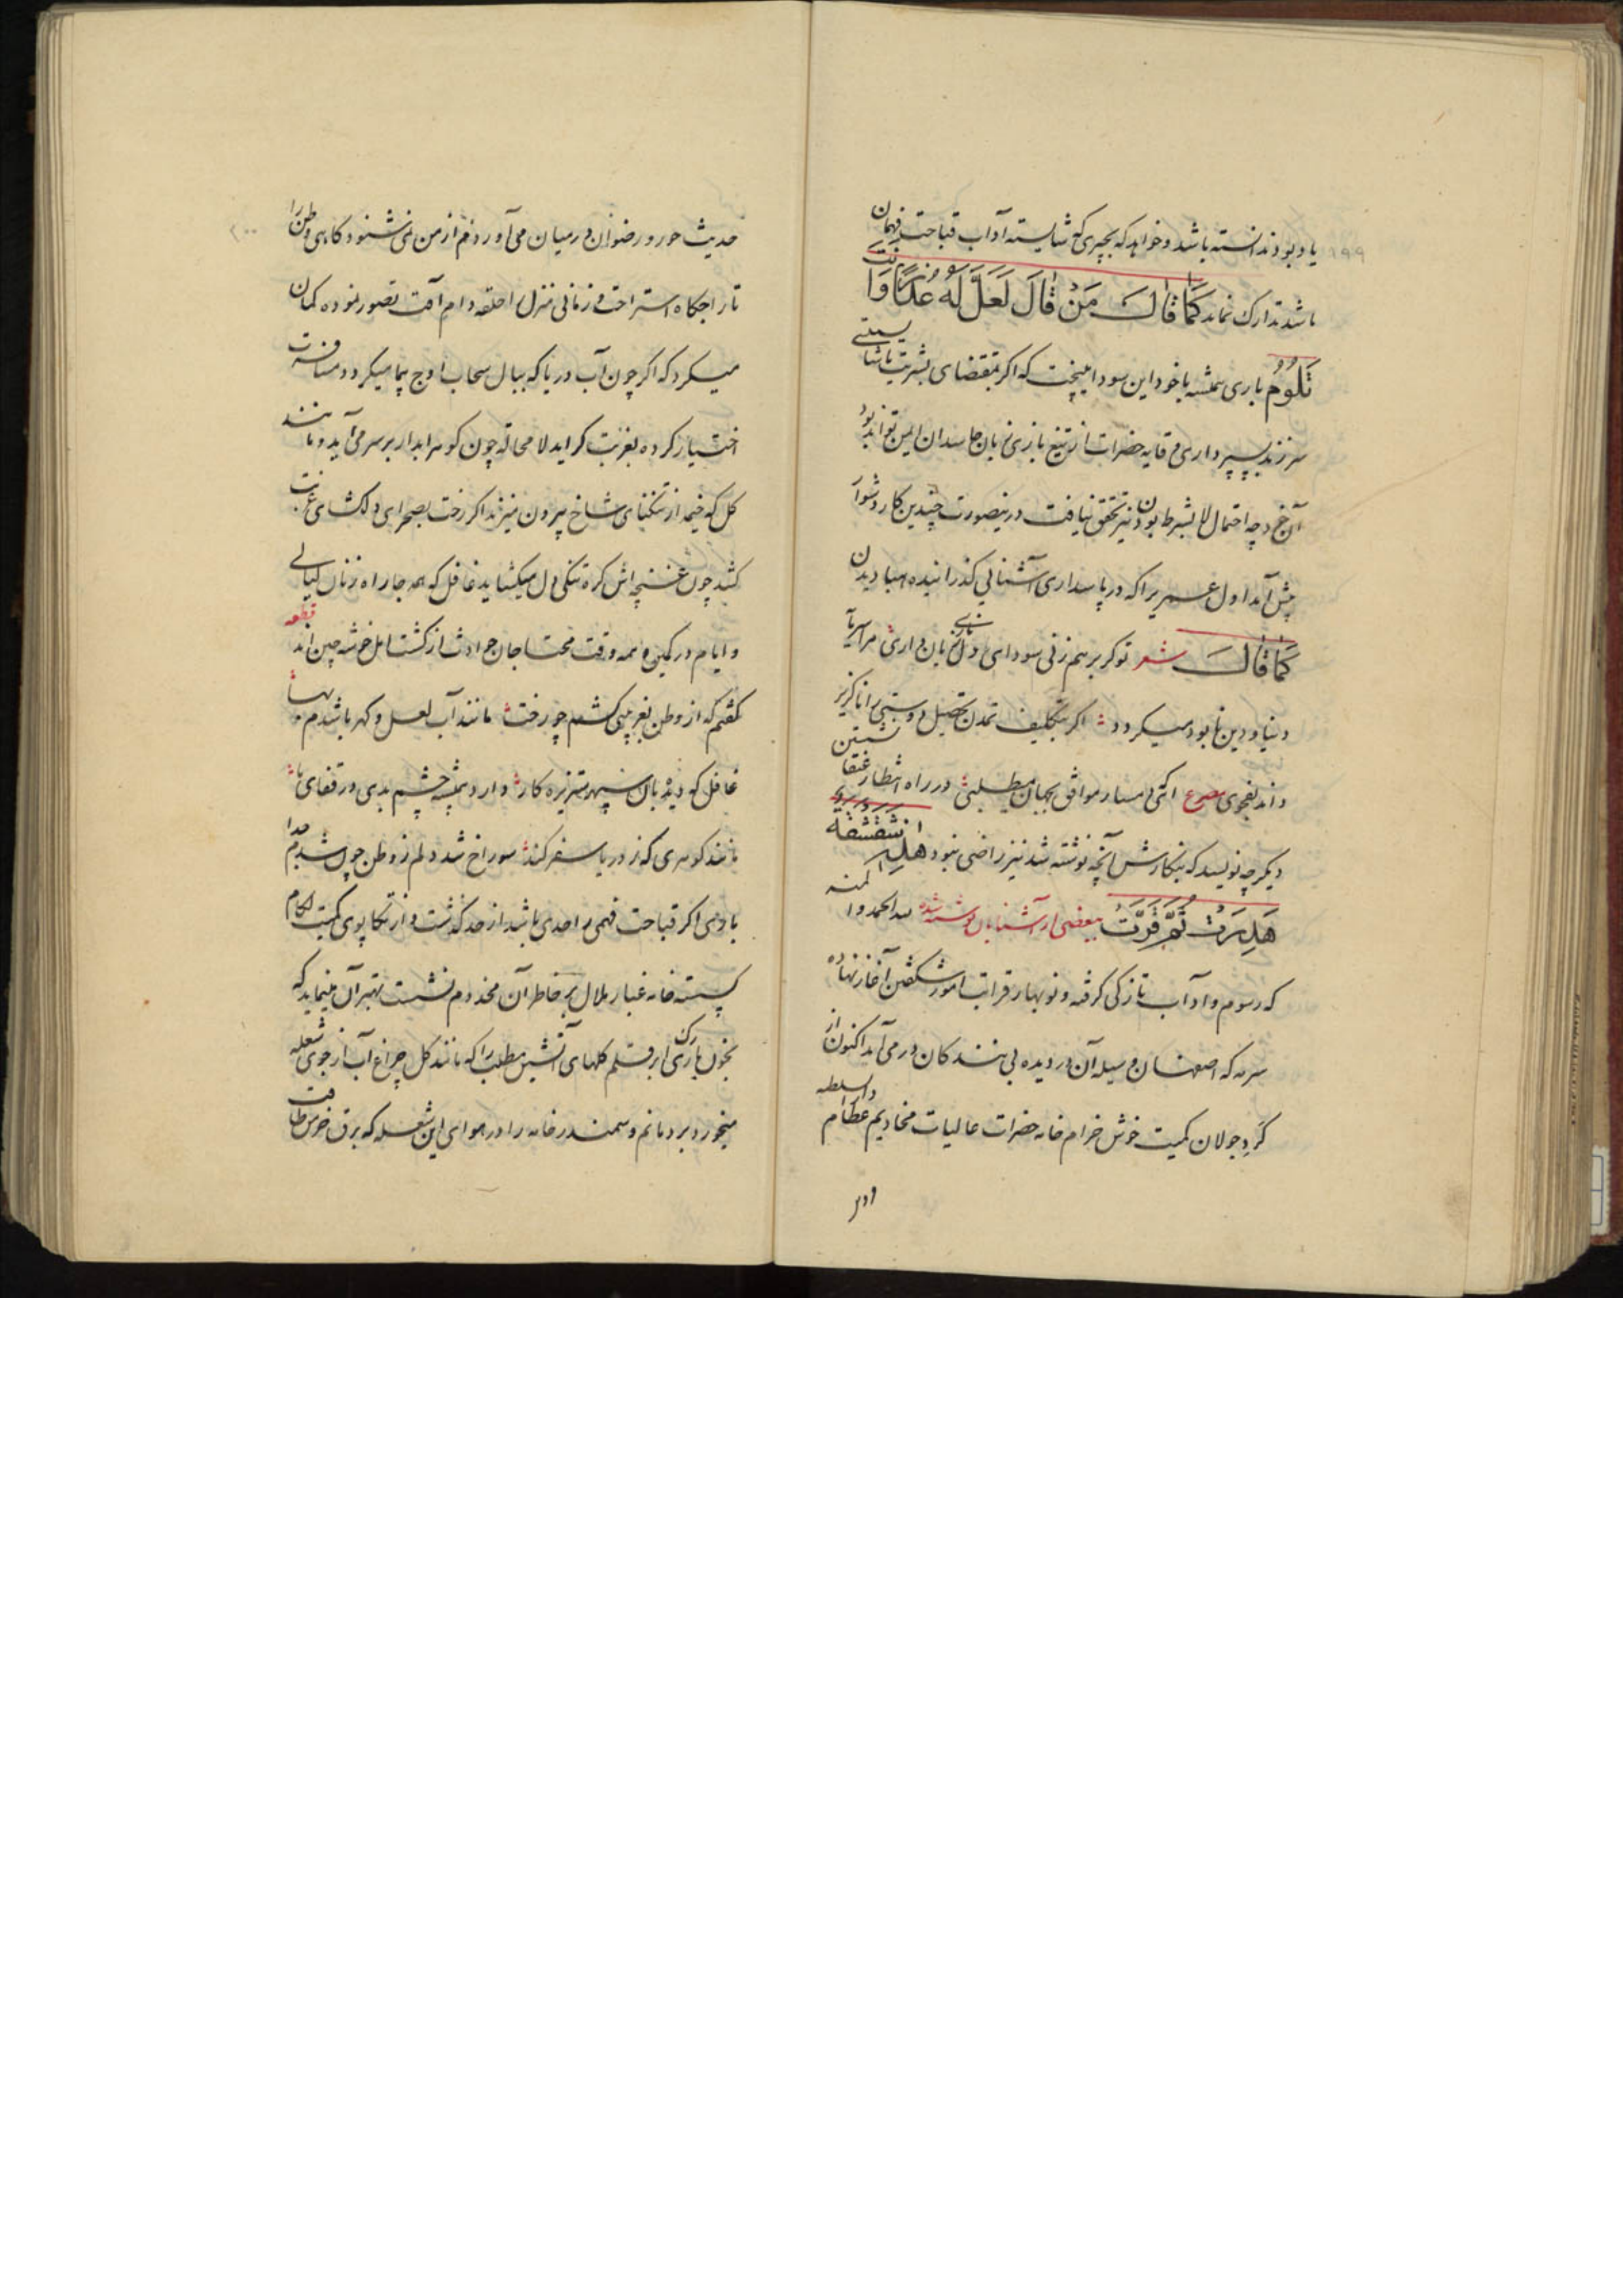 ۱۹۹
یاد بود ندانسته باشد و خواهد که بچیزی که شایسته آداب قباحت فهمان
باشد تدارک نماید کَمَا قَالَ مَنْ قَالَ لَعَلَّ لَهُ عُذْرًا وَاَنْتَ
تَلُومُ باری همیشه با خود این سودا میپخت که اگر بمقتضای بشریت ناشایستی
سر زند سپرداری وقایه حضرات از تیغ بازی زبان حاسدان ایمن تواند بود
آن خود چه احتمال لا بشرط بودن نیز تحقق نیافت درینصورت چندین کار دشوار
پیش آمد اول عمریرا که در پاسداری آشنائی گذرانیده هبا دیدن
کَمَا قَالَ شعر تو گر برهم زنی سودای دل زیان داری مرا سرمایهٔ
دنیا و دین نابود میگردد اگر بتکلیف تمدن تحصیل دوستی را ناگزیر
داند بفحوای مصرع آدمی مسار موافق بجهان میطلبی در راه انتظار عنقا نشستن
دیگر چه نویسد که بنگارش آنچه نوشته شد نیز راضی نبود هَلْ اشقشقه
هَدَرَتْ ثُمَّ قَرَّتْ ببعضی از آشنایان نوشته شده لله الحمد و المنه
که رسوم و آداب تازگی گرفته و نوبهار قرابت امور شکفتن آغاز نهاده
سرمه که اصفهان وسیله آن در دیده بینندگان در می‌آید اکنون از
گرد جولان کمیت خوش خرام خامه حضرات عالیات مخادیم عظام واسطه
۲۰۰
حدیث حور و رضوان در میان می‌آوردم از من نمی‌شنود گاهی وطن را
تاراجگاه استراحت و زمانی منزل را حلقه دام آفت تصور نموده گمان
میکرد که اگر چون آب دریا که ببال سحاب اوج پیما میگردد مسافرت
اختیار کرده بغربت گراید لا محاله چون گوهر آبدار بر سر می‌آید و مانند
گل که خیمه از تنگنای شاخ بیرون میزند اگر رخت بصحرای دلگشای غربت
کشد چون غنچه‌اش گره تنگی دل میگشاید غافل که همه جا راه زنان لیالی
و ایام در کمین و همه وقت محتاجان حوادث از کشت امل خوشه چین‌اند قطعه
گفتم که از وطن بغریبی کشم چو رخت مانند آب لعل و گهر باشدم بها
غافل که دیدبان سپهر ستیزه کار دارد همیشه چشم بدی در قفای ما
مانند گوهری که ز دریا سفر کند سوراخ شد دلم ز وطن چون شدم جدا
باوی اگر قباحت فهمی و احدی باشد از حد گذشت و از تکاپوی کمیت لکام
گسسته خامه غبار ملال بر خاطر آن مخدوم نشست بهتر آن مینماید که
بخون باری رگ ابر قلم گلهای آتشین مطلب را که مانند گل چراغ آب از جوی شعله
میخورد بردمانم و سمندر خامه را در هوای این شعله که برق خرمن طاقت